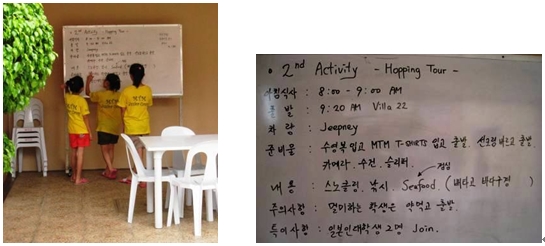 • 2nd Activity - Hopping Tour -
아침식사 : 8:00 - 9:00 AM
출발 : 9:20 AM Villa 22
차량 : Jeepney
준비물 : 수영복 입고 MTM T-SHIRTS 입고 출발. 선크림 바르고 출발.
카메라. 수건. 슬리퍼.
점심
내용 : 스노클링. 낚시. Seafood (배타고 바다구경)
주의사항 : 멀미하는 학생은 약먹고 출발.
특이사항 : 일본인 대학생 2명 Join.